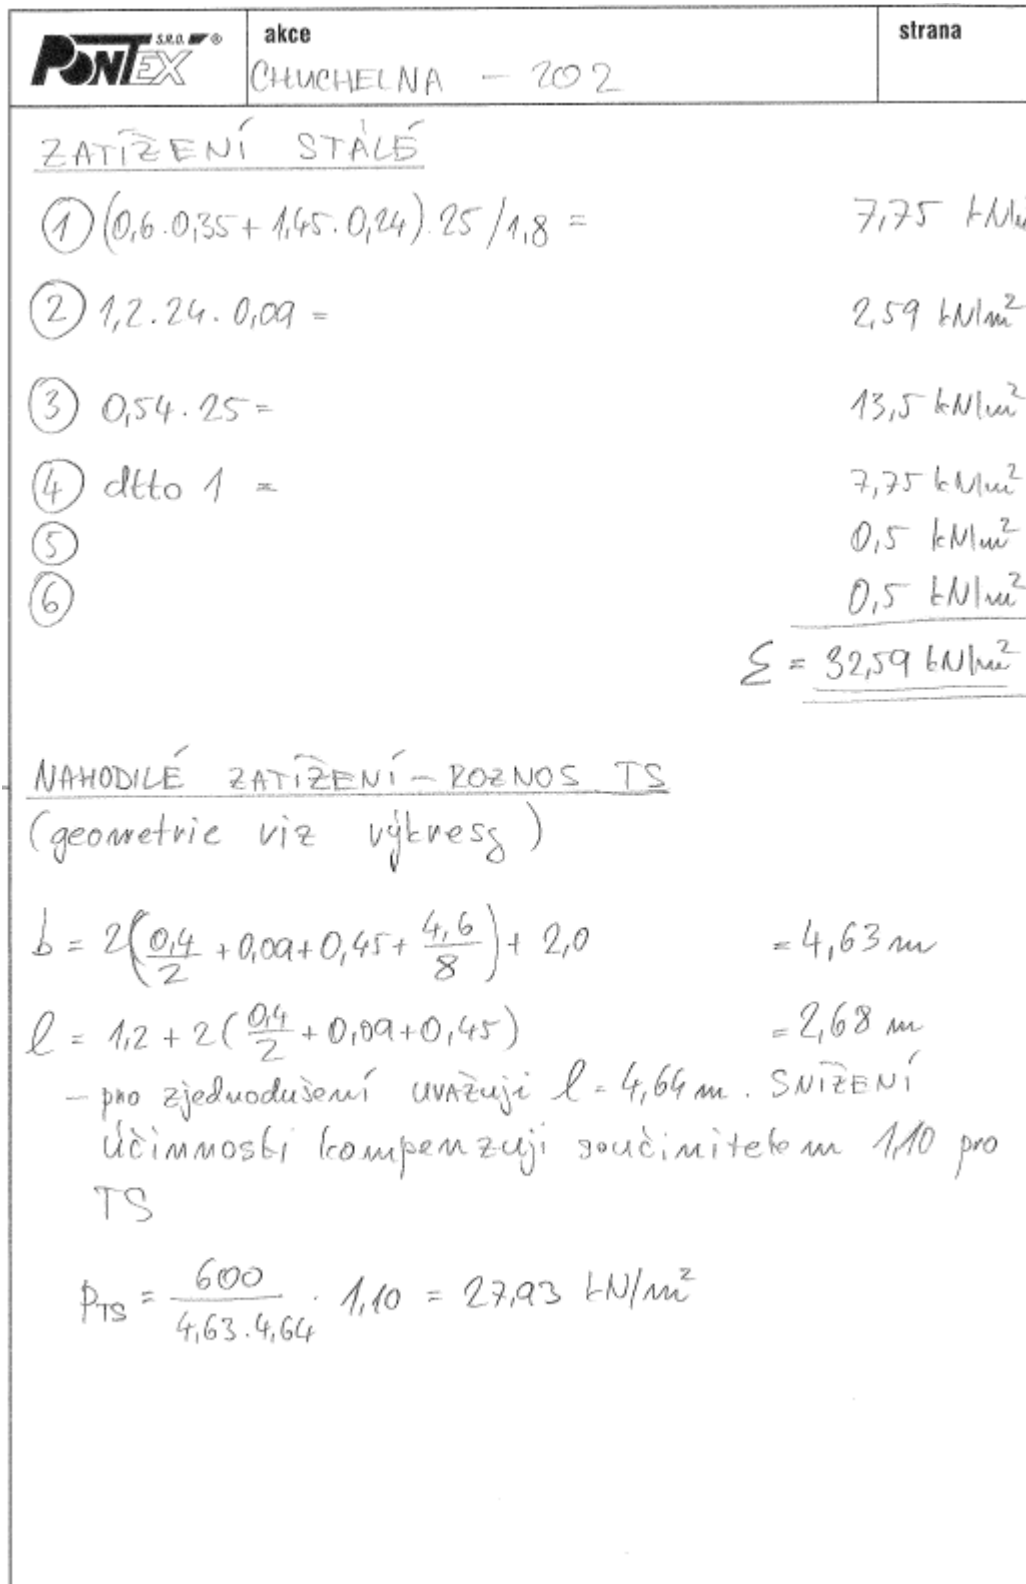 PONTEX S.R.O. ®
akce
CHUCHELNA - 202
strana
ZATÍŽENÍ STÁLÉ
① (0,6.0,35 + 1,45.0,24).25/1,8 = 7,75
② 1,2.24.0,09 = 2,59 kN/m²
③ 0,54.25 = 13,5 kN/m²
④ dtto 1 = 7,75 kN/m²
⑤ 0,5 kN/m²
⑥ 0,5 kN/m²
Σ = 32,59 kN/m²
NAHODILÉ ZATÍŽENÍ - ROZNOS TS
(geometrie viz výkresy)
b = 2(0,4/2 + 0,09 + 0,45 + 4,6/8) + 2,0 = 4,63 m
l = 1,2 + 2(0,4/2 + 0,09 + 0,45) = 2,68 m
- pro zjednodušení uvažuji l = 4,64 m. SNÍŽENÍ
účinnosti kompenzuji součinitelem 1,10 pro
TS
pTS = 600/4,63.4,64 . 1,10 = 27,93 kN/m²